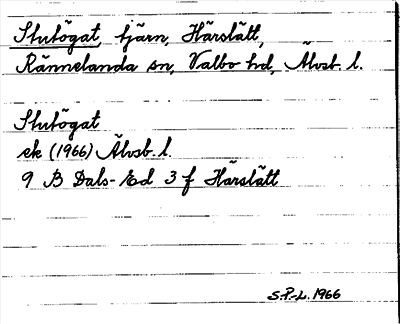 Stutögat, tjärn, Härslätt,
Rännelanda sn, Valbo hd, Älvsb. l.
Stutögat
ek (1966) Älvsb. l.
9 B Dals-Ed 3 f Härslätt
S.P.-L. 1966